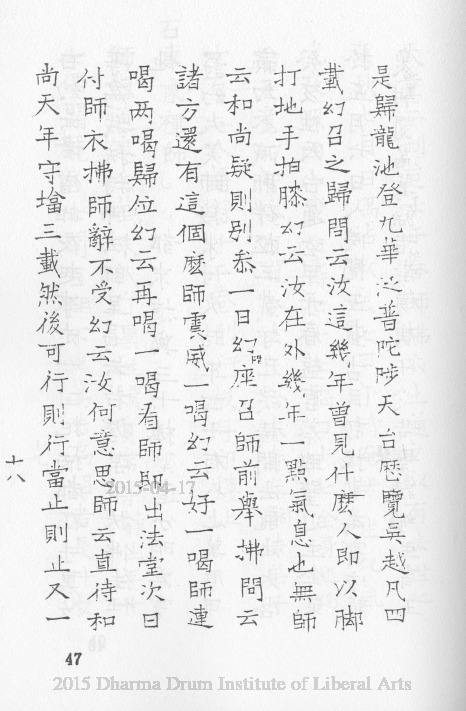 是歸龍池登九華泛普陀陟天台歷覽吳越凡四
載幻召之歸問云汝這幾年曾見什麼人即以腳
打地手拍膝幻云汝在外幾年一點氣息也無師
云和尚疑則別叅一日幻陞座召師前舉拂問云
諸方還有這個麼師震威一喝幻云好一喝師連
喝两喝歸位幻云再喝一喝看師即出法堂次日
付師衣拂師辭不受幻云汝何意思師云直待和
尚天年守墖三載然後可行則行當止則止又一
十八
2015-04-17
47
2015 Dharma Drum Institute of Liberal Arts